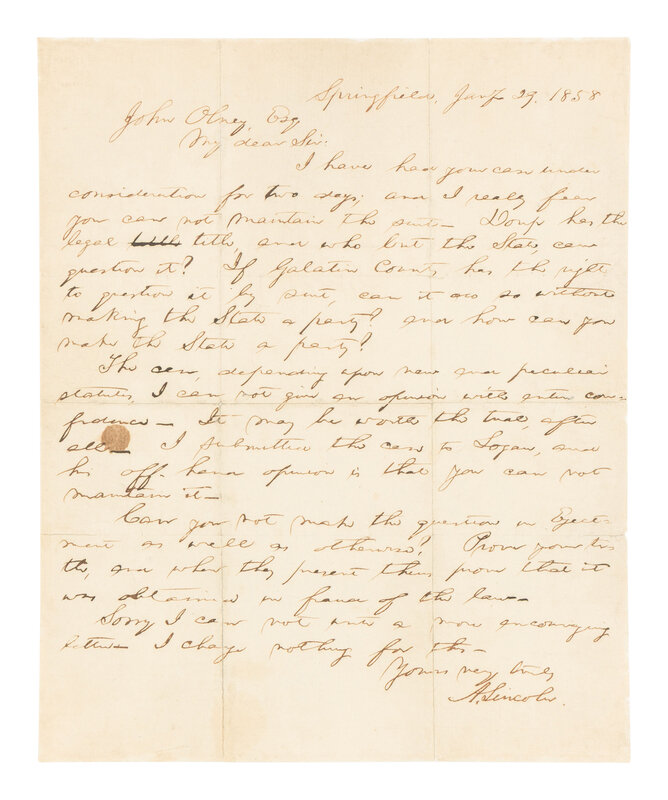 Springfield, Jany 29. 1858
John Olney, Esq
My dear Sir:
I have had your case under
consideration for two days; and I really fear
you can not maintain the suit— has the
legal title title, and who but the State, can
question it? If Galatin County, has the right
to question it by suit, can it do so without
making the State a party? and how can you
make the State a party?
The case, depending upon new and peculiar
statutes, I can not give an opinion with entire con-
fidence— It may be worth the trial, after
all— I submitted the case to Logan, and
his off-hand opinion is that you can not
maintain it—
Can you not make the question in Eject-
ment as well as otherwise? Prove your ti-
tle, and when they present theirs prove that it
was obtained in fraud of the law—
Sorry I can not write a more encouraging
letter— I charge nothing for this—
Yours very truly
A. Lincoln.